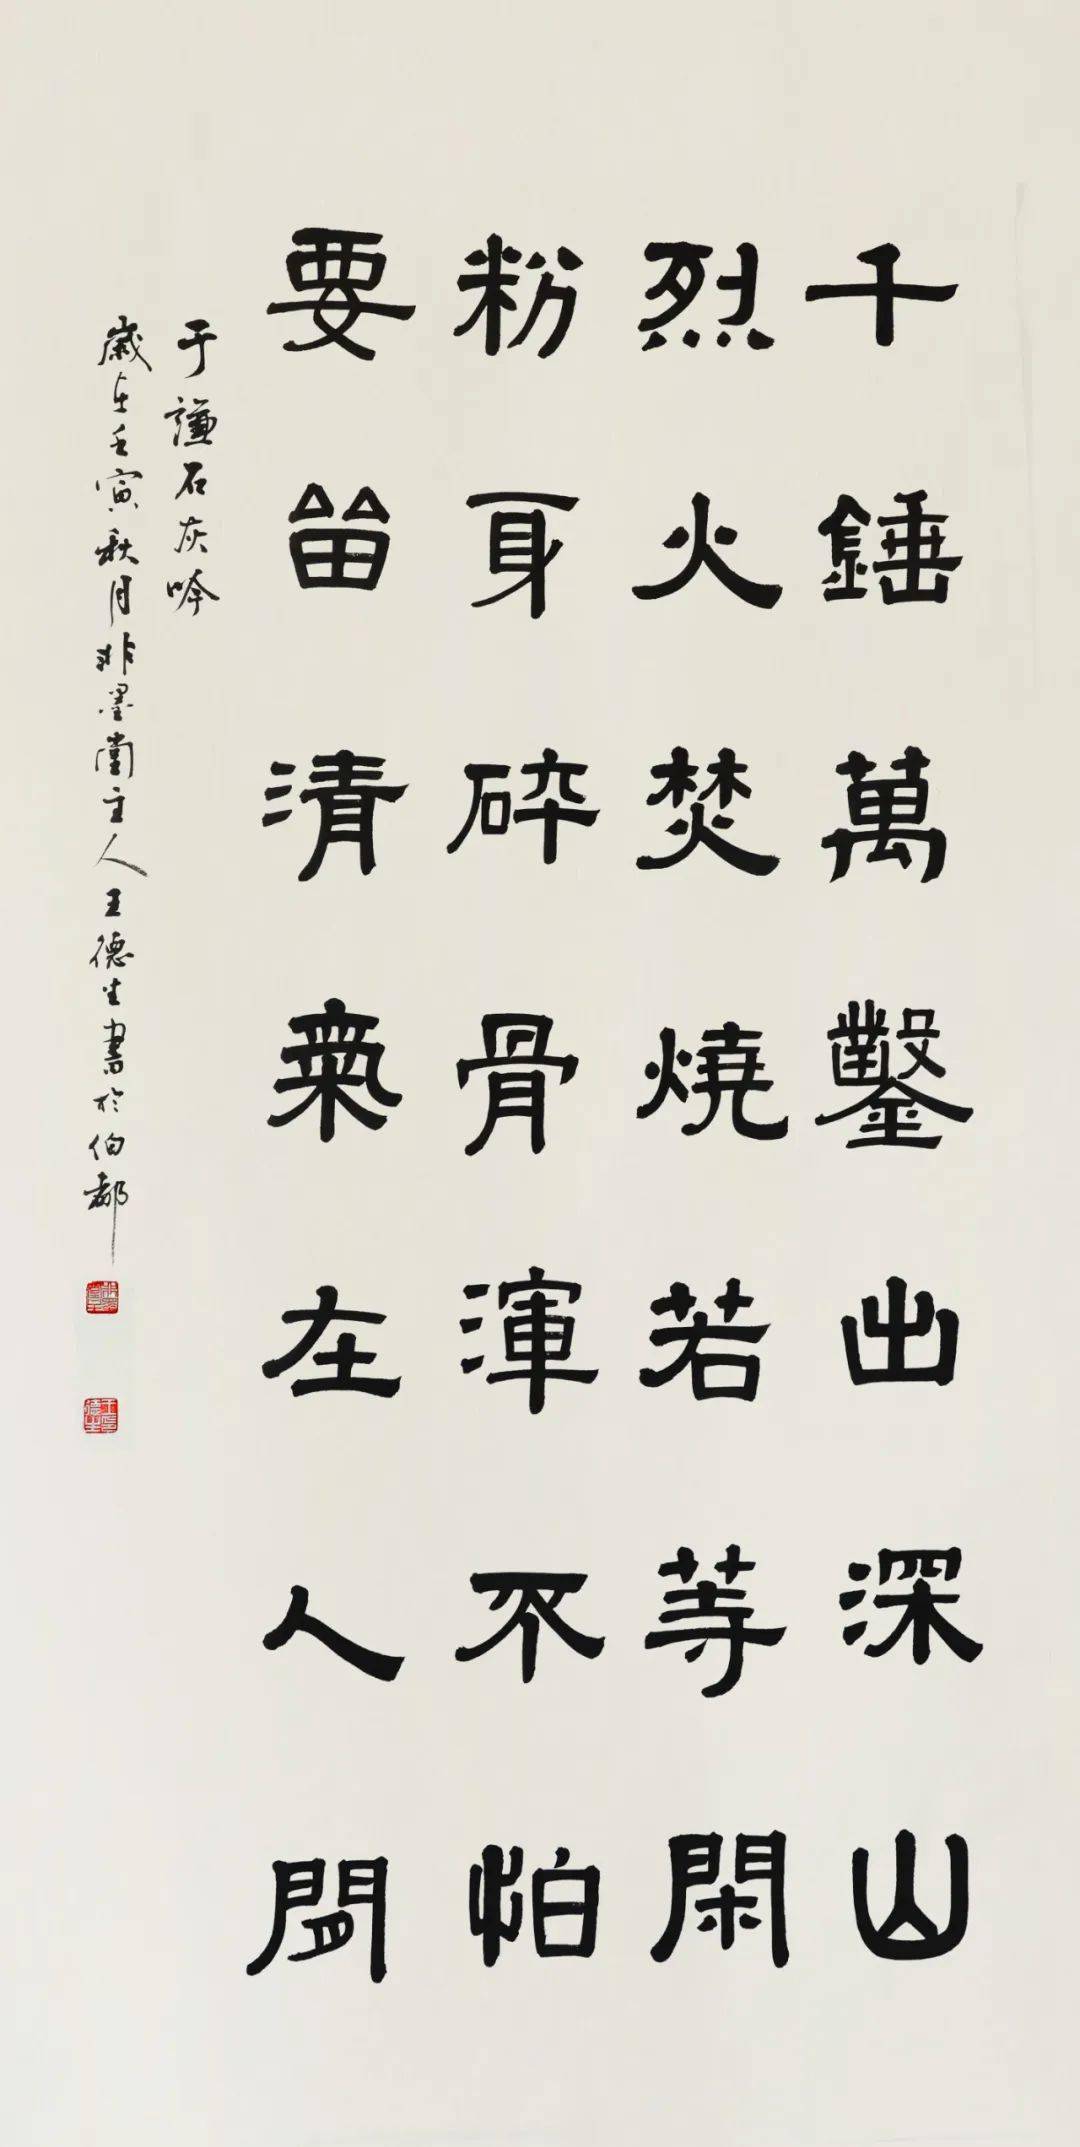 千錘萬鑿出深山
烈火焚燒若等閑
粉身碎骨渾不怕
要留清氣在人間
于謙石灰吟
歲在壬寅秋月非墨堂主人王德生書於伯都